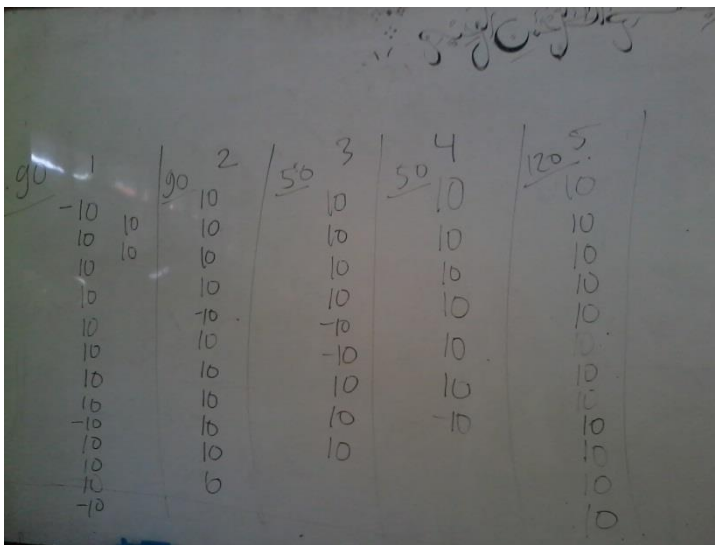 90 1
-10
10 10
10 10
10
10
10
10
10
-10
10
10
10
-10
90 2
10
10
10
10
-10
10
10
10
10
10
0
50 3
10
10
10
10
-10
-10
10
10
10
50 4
10
10
10
10
10
10
-10
120 5
10
10
10
10
10
10
10
10
10
10
10
10